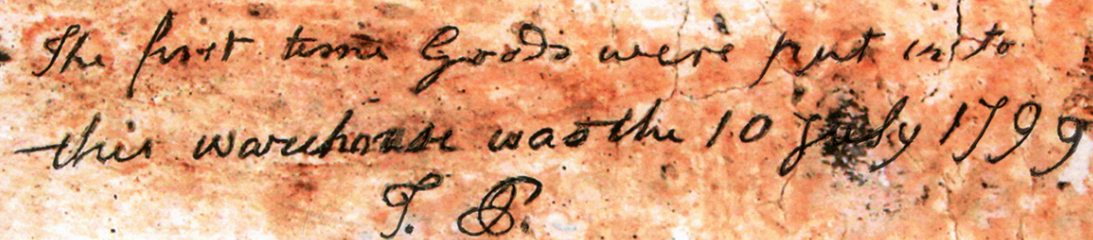 The first time Goods were put into
this warehouse was the 10 July 1799